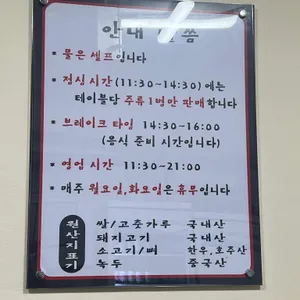 안내 말씀
* 물은 셀프입니다
* 점심시간(11:30~14:30)에는
테이블당 주류 1병만 판매합니다
* 브레이크 타임 14:30-16:00
(음식 준비 시간입니다)
* 영업시간 11:30~21:00
* 매주 월요일,화요일은 휴무입니다
원산지표기
쌀/고춧가루 국내산
돼지고기 국내산
소고기/뼈 한우,호주산
녹두 중국산